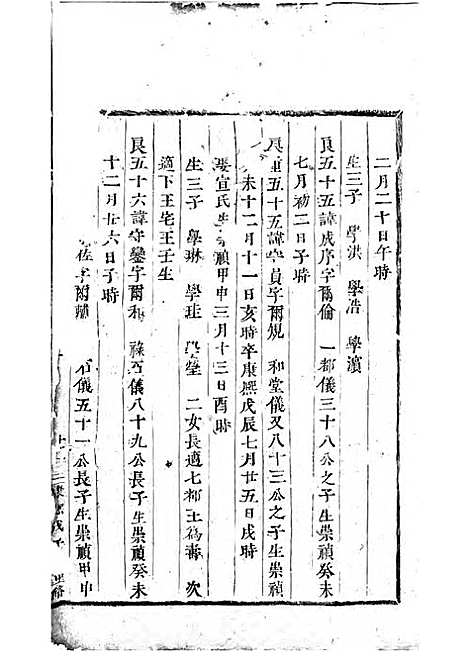 二月二十日午時
生三子 學洪 學浩 學濱
良五十五諱成序字爾倫 一都儀三十八公之子生崇禎癸未
七月初二日子時
良重五十五諱守貞字爾規 和堂儀又八十三公之子生崇禎癸
未十二月十一日亥時卒康熙戊辰七月廿五日戌時
娶宣氏生崇禎甲申三月十三日酉時
生三子 學琳 學珪 學瑩 二女長適七都王爲壽 次
適下王宅王壬生
良五十六諱守鑾字爾和 祿百儀八十九公長子生崇禎癸未
十二月廿六日子時
佐字爾輔 石儀五十一公長子生崇禎甲申